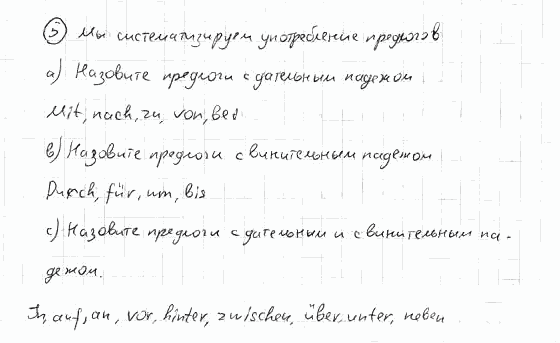 5) Мы систематизируем употребление предлогов
a) Назовите предлоги с дательным падежом
Mit, nach, zu, von, bei
b) Назовите предлоги с винительным падежом
Durch, für, um, bis
c) Назовите предлоги с дательным и с винительным па-
дежом.
In, auf, an, vor, hinter, zwischen, über, unter, neben